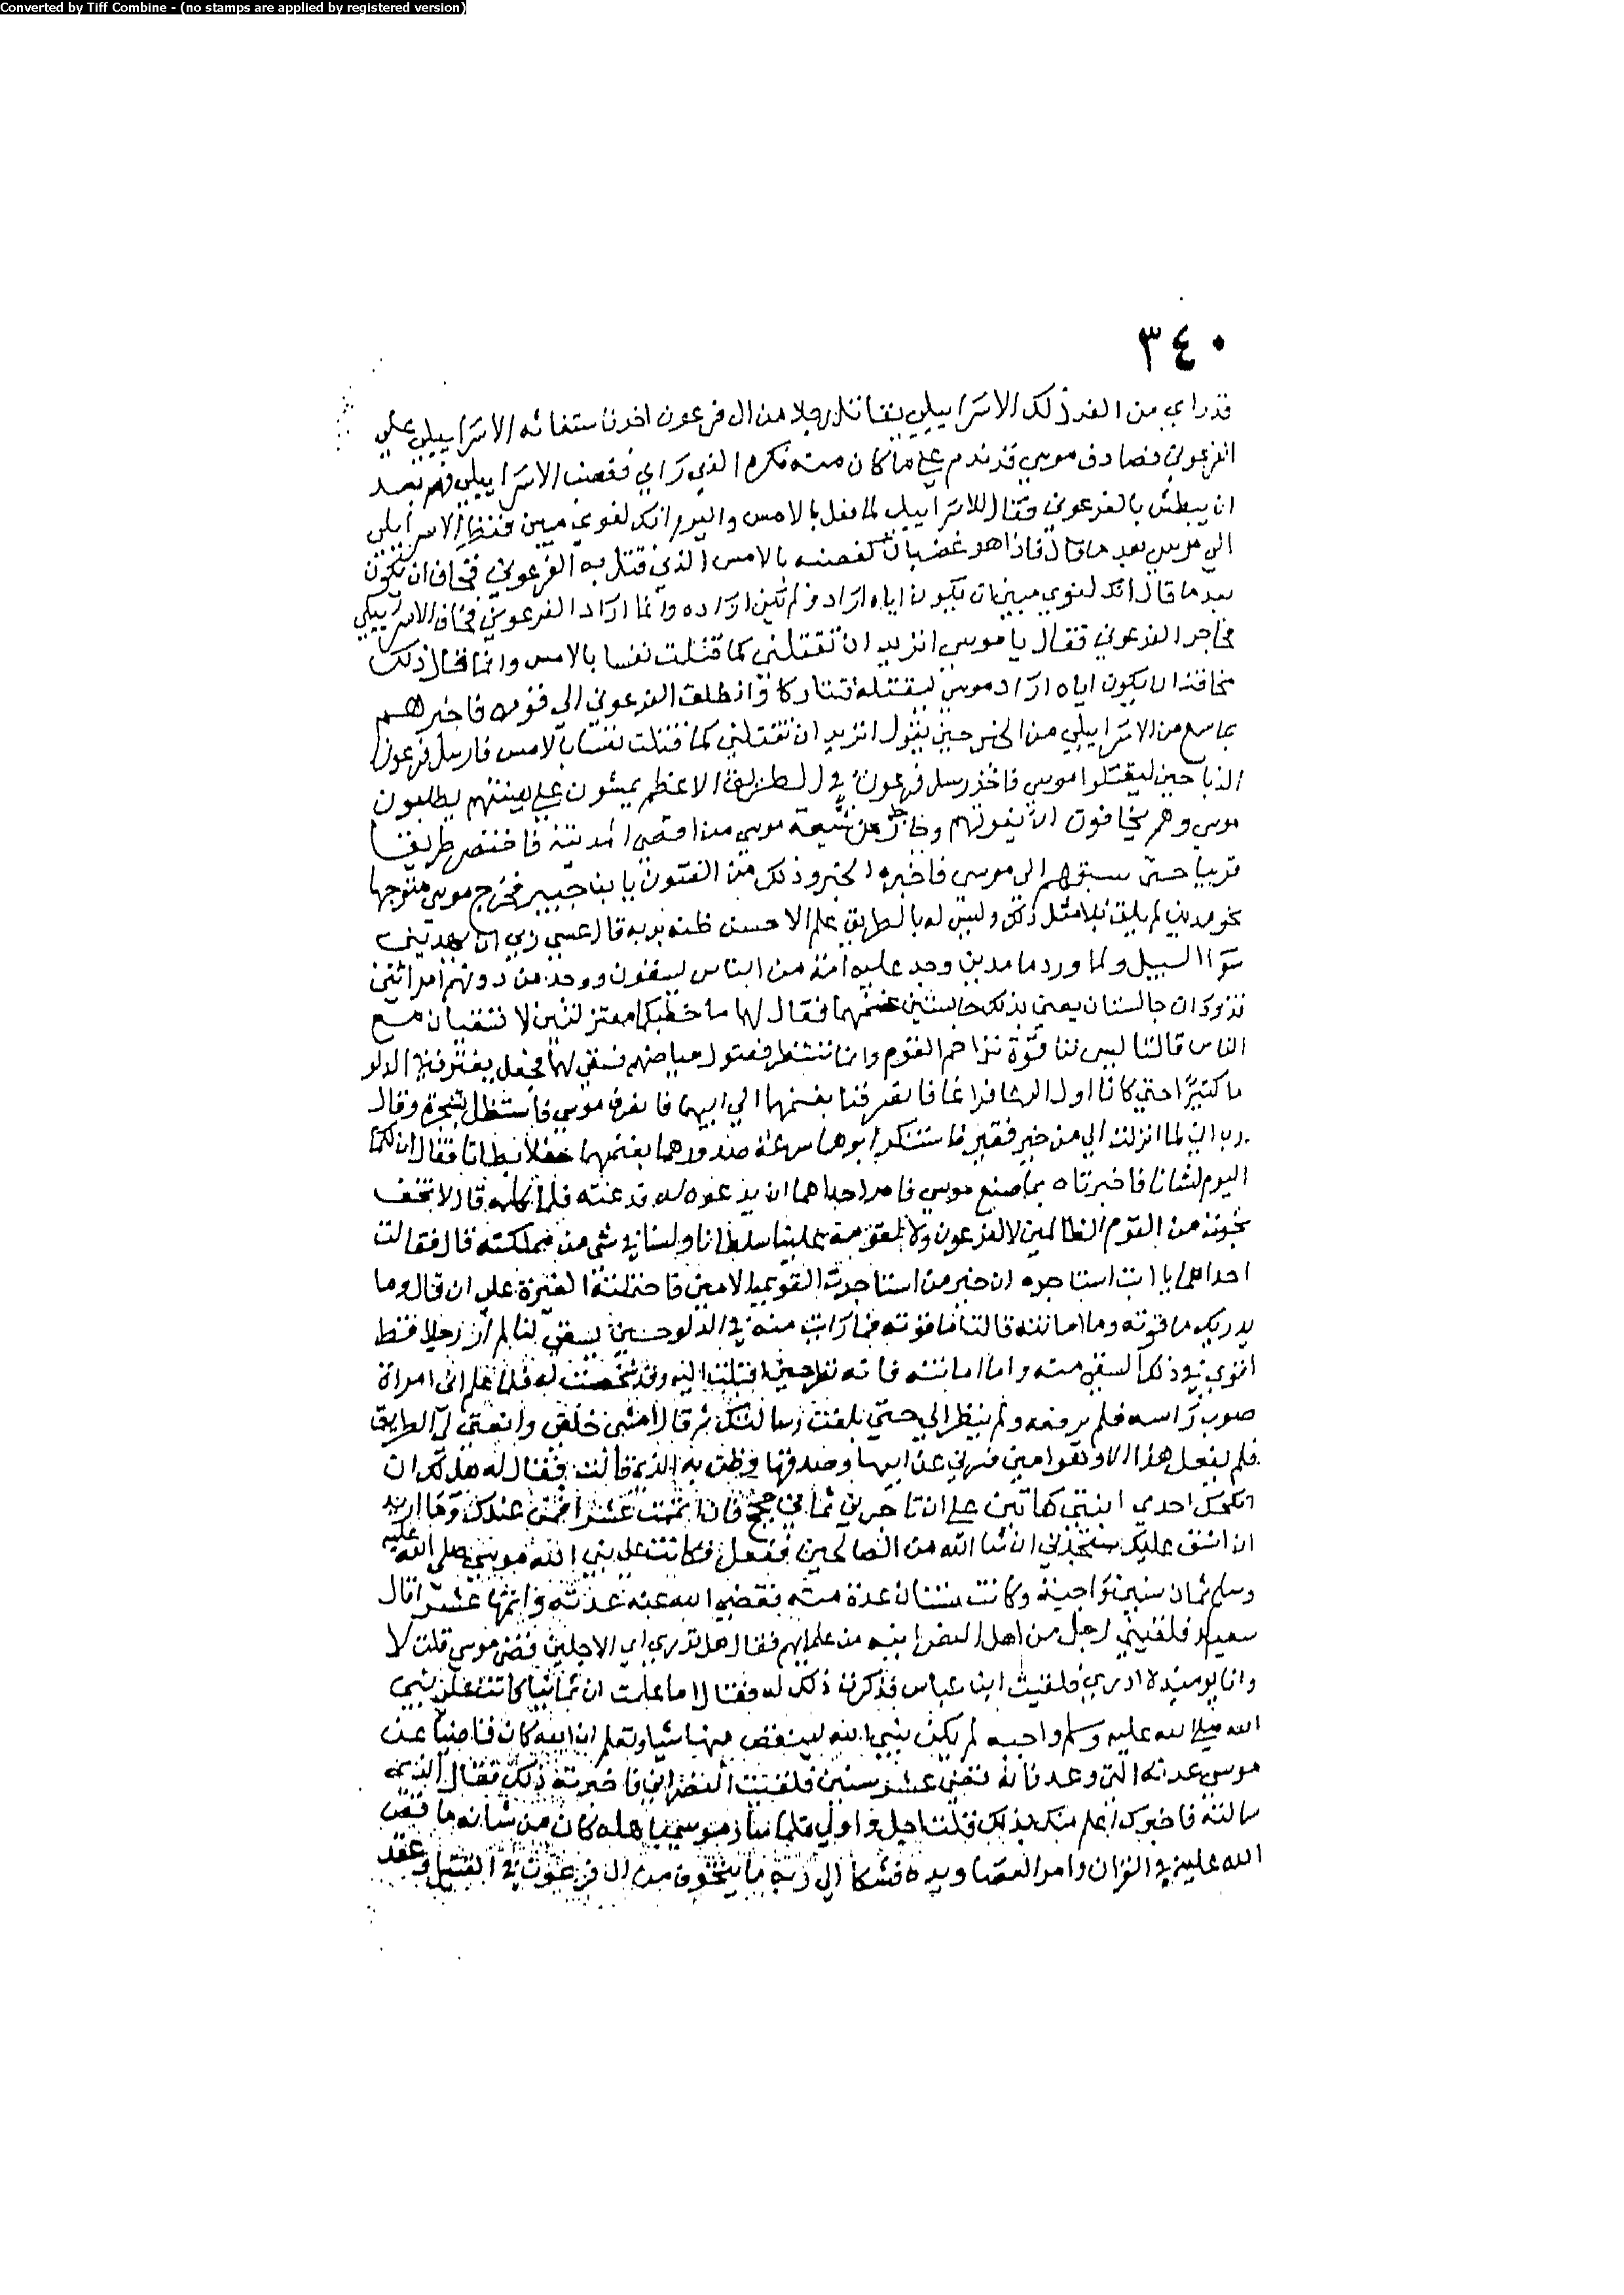 Converted by Tiff Combine - (no stamps are applied by registered version)
٣٤٠
قد راي من الغد ذلك الاسراييلي يقاتل رجلا من ال فرعون اخر فاستغاثه الاسراييلي علي
الفرعوني فصادف موسي قد ندم علي ما كان منه فكره الذي راي فغضب الاسراييلي فهم بعد
ان يبطش بالفرعوني فقال للاسراييلي لما فعل بالامس واليوم انك لغوي مبين فنظر الاسرايلي
الي موسي بعد ما قال فاذا هو غضبان كغضبه بالامس الذي قتل به الفرعوني فخاف ان تكون
بعد ما قال انك لغوي مبين ان يكون اياه اراد ولم يكن اراده وانما اراد الفرعوني فخاف الاسراييلي
فحاجر الفرعوني فقال يا موسي اتريد ان تقتلني كما قتلت نفسا بالامس وانما قال ذلك
مخافة ان يكون اياه اراد موسي ليقتله فتتاركا وانطلق الفرعوني الي قومه فاخبرهم
بما سمع من الاسراييلي من الخبر حين يقول اتريد ان تقتلني كما قتلت نفسا بالامس فارسل فرعون
الذباحين ليقتلوا موسي فاخذ رسل فرعون في الطريق الاعظم يمشون علي هينتهم يطلبون
موسي وهم يخافون ان يفوتهم وجا رجل من شيعة موسي من اقصي المدينة فاختصر طريقا
قريبا حتي سبقهم الي موسي فاخبره الخبر وذلك من الفتون يا بن جبير فخرج موسي متوجها
نحو مدين لم يلق بلا مثل ذلك وليس له بالطريق علم الا حسن ظنه بربه قال عسي ربي ان يهديني
سوا السبيل ولما ورد ما مدين وجد عليه امة من الناس يسقون ووجد من دونهم امراتين
تذودان جالستان يعني بذلك حابستين غنمهما فقال لهما ما خطبكما معتزلتين لا تسقيان مع
الناس قالتا ليس لنا قوة نزاحم القوم وانما ننتظر فضول حياضهم فسقي لهما فجعل يغترف في الدلو
ما كثيرا حتي كانا اول الرعا فراغا فانصرفتا بغنمهما الي ابيهما فانصرف موسي فاستظل بشجرة وقال
رب اني لما انزلت الي من خير فقير فاستنكر ابوهما سرعة صدورهما بغنمهما حفلا بطانا فقال ان لكما
اليوم لشانا فاخبرتاه بما صنع موسي فامر احداهما ان يدعوه له فدعته فلما كلمه قال لا تخف
نجوت من القوم الظالمين لا لفرعون ولا لقومه علينا سلطانا ولسنا في شي من مملكته قال فقالت
احداهما يا ابت استاجره ان خير من استاجرت القوي الامين فاحتملته الغيرة علي ان قال وما
يدريك ما قوته وما امانته قالت اما قوته فما رايت منه في الدلو حين سقي لنا لم ار رجلا قط
اقوي في ذلك السقي منه واما امانته فانه نظر حين اقبلت اليه وقد شخصت له فلما علم اني امراة
صوب راسه فلم يرفعه ولم ينظر الي حتي بلغت رسالتك ثم قال امشي خلفي وانعتي لي الطريق
فلم يفعل هذا الا وهو امين فسري عن ابيها وصدقها وظن به الذي قالت فقال له هل لك ان
انكحك احدي ابنتي هاتين علي ان تاجرني ثماني حجج فان اتممت عشرا فمن عندك وما اريد
ان اشق عليك ستجدني ان شا الله من الصالحين ففعل فكانت علي نبي الله موسي صلي الله عليه
وسلم ثمان سنين واجبة وكانت سنتان عدة منه فقضي الله عنه عدته فاتمها عشرا قال
سعيد فلقيني رجل من اهل النصرانية من علمايهم فقال هل تدري اي الاجلين قضي موسي قلت لا
وانا يوميذ لا ادري فلقيت ابن عباس فذكرت ذلك له فقال اما علمت ان ثمانيا كانت علي نبي
الله صلي الله عليه وسلم واجبه لم يكن نبي الله لينقص منها شيا وتعلم ان الله كان قاضيا عن
موسي عدته التي وعد فانه قضي عشر سنين فلقيت النصراني فاخبرته ذلك فقال الذي
سالته فاخبرك اعلم منك بذلك قلت اجل واولي فلما سار موسي باهله كان من شانه ما قص
الله عليك في القران وامر العصا ويده فشكا الي ربه ما يتخوف من ال فرعون في القتيل وعقد